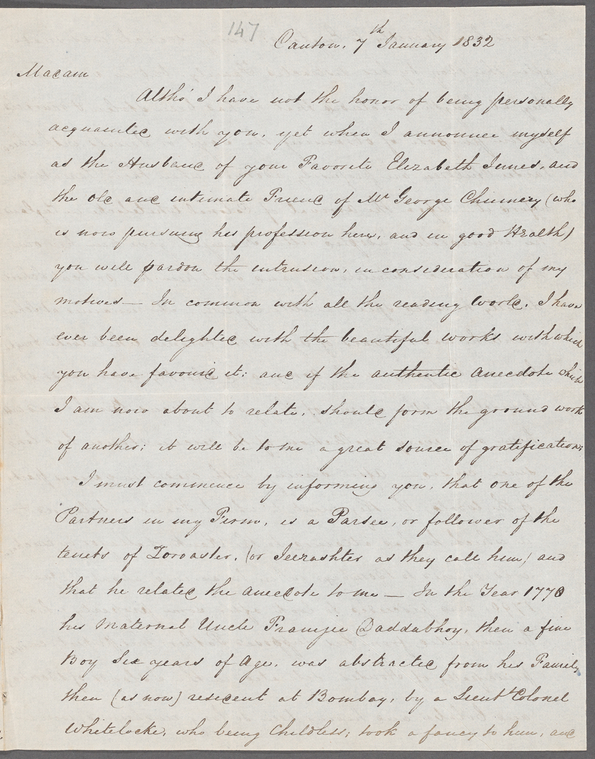 147
Canton, 7th January 1832
Madam
Altho' I have not the honor of being personally
acquainted with you, yet when I announce myself
as the Husband of your Favorite Elizabeth Innes, and
the old and intimate Friend of Mr George Chinnery (who
is now pursuing his profession here, and in good Health)
you will pardon the intrusion, in consideration of my
motives — In common with all the reading world, I have
ever been delighted with the beautiful works with which
you have favored it; and if the authentic anecdote which
I am now about to relate, should form the ground work
of another; it will be to me a great source of gratification.
I must commence by informing you, that one of the
Partners in my Firm, is a Parsee, or follower of the
tenets of Zoroaster, (or Jeerashter as they call him) and
that he related the anecdote to me — In the Year 1770
his Maternal Uncle Framjee Daddabhoy, then a fine
Boy Six years of Age, was abstracted from his Family,
then (as now) resident at Bombay, by a Lieut. Colonel
Whitelocke, who being Childless; took a fancy to him, and